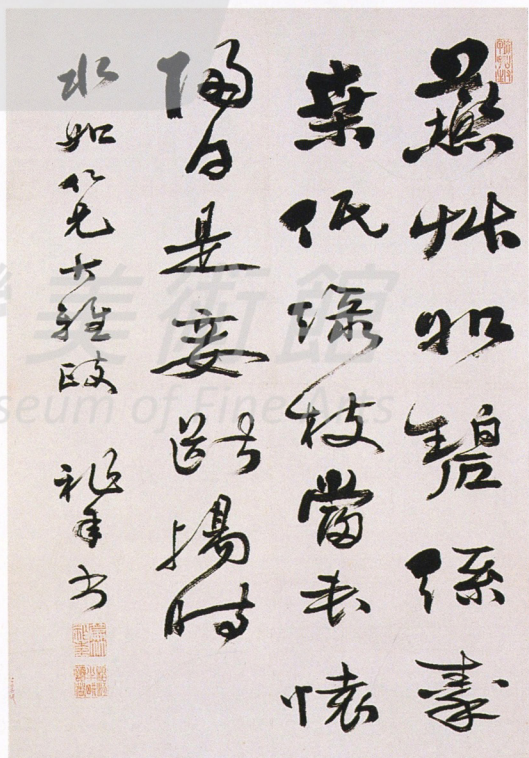 燕艸如碧絲秦
桒低綠枝當君懷
歸日是妾斷腸時
水如仁兄大雅政 年書
美術館
seum of Fine Arts